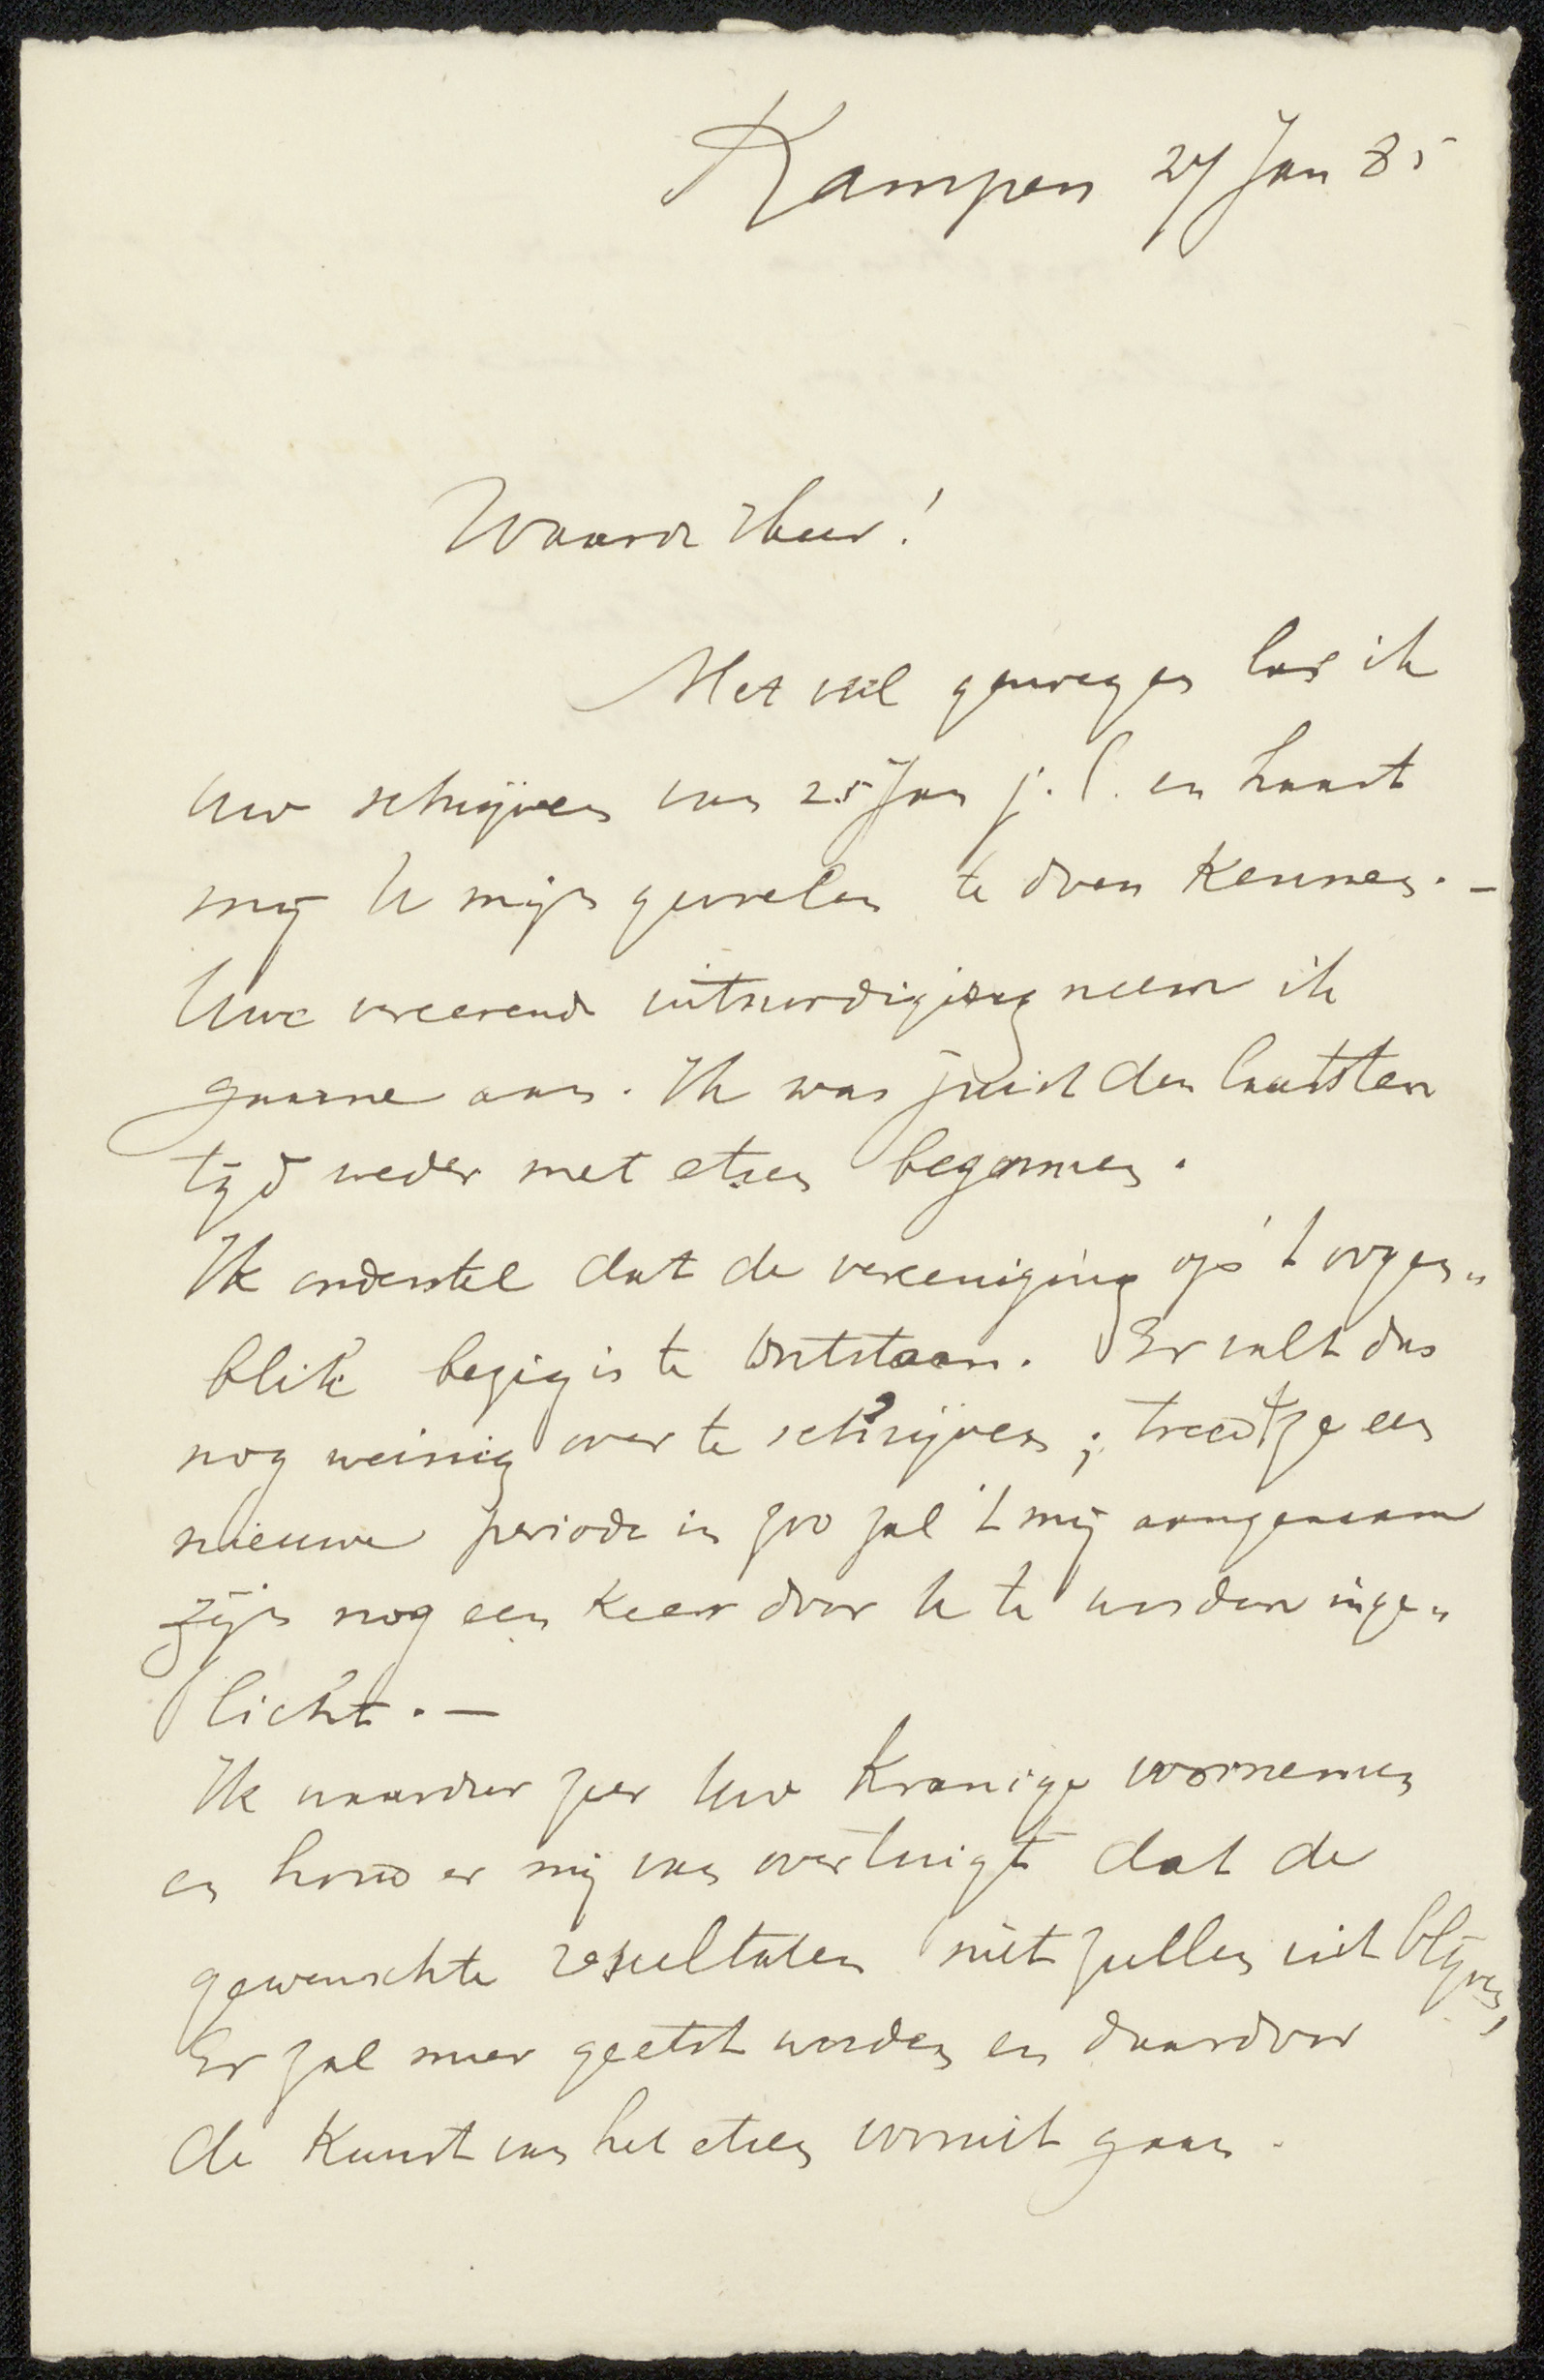 Kampen 27 Jan 85
Waarde Heer!
Met veel genoegen las ik
Uw schrijven van 25 Jan j.l. en haast
mij U mijn gevoelen te doen kennen. —
Uwe vereerende uitnoodiging neem ik
gaarne aan. Ik was juist den laatsten
tijd weder met etsen begonnen.
Ik onderstel dat de vereeniging op 't oogen„
blik bezig is te ontstaan. Er valt dus
nog weinig over te schrijven; treedt ze een
nieuwe periode in zoo zal 't mij aangenaam
zijn nog een keer door U te worden inge„
licht. —
Ik waardeer zeer Uw kranige voornemen
en houd er mij van overtuigt dat de
gewenschte resultaten niet zullen uit blijven,
Er zal meer geetst worden en daardoor
de Kunst van het etsen vooruit gaan.